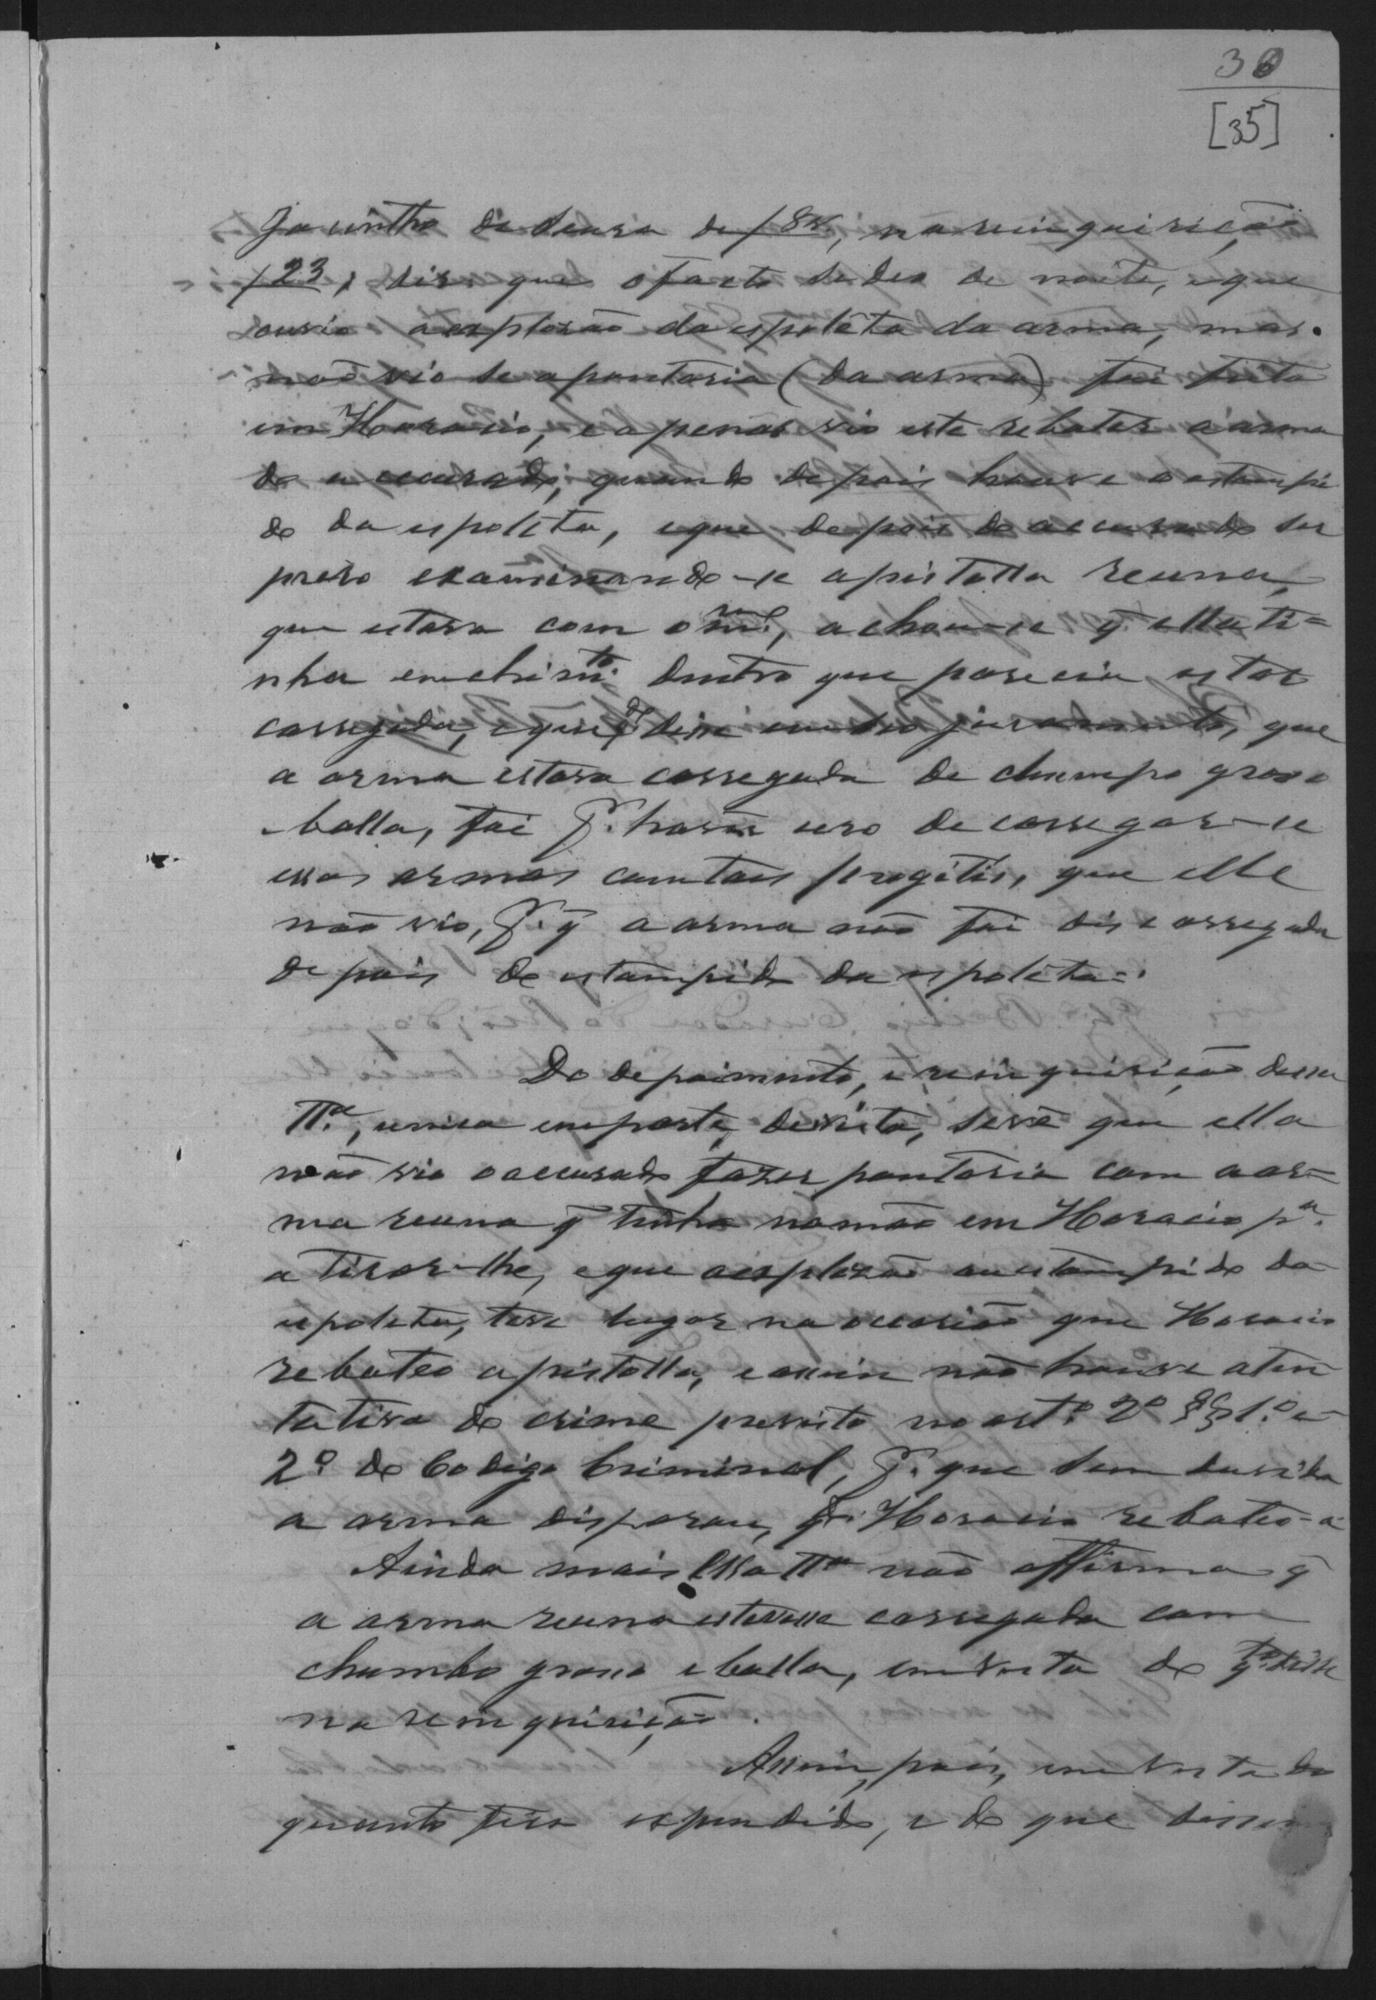 30
[35]
Jacintho de Souza de f 8v, na reinquirição
f 23, diz que o facto se deu de noite, e que
ouvio a explosão da espolêta da arma, mas
não vio se a pontaria (da arma) foi feita
em Horacio, e apenas vio este rebater a arma
do accusado, quando depois houve o estampi
do da espoleta, e que depois do accusado ser
preso examinando-se a pistolla reuna,
que estava com o mmo., achou-se q̃ ella ti-
nha enchimto. dentro que parecia estar
carregada, e que qdo disse em seo juramento, que
a arma estava carregada de chumpo grosso
e balla, foi pr. haver uso de carregar-se
essas armas com taes progetis, que elle
não vio, pr. q̃ a arma não foi discarregada
depois do estampido da espolêta.
Do depoimento, e reinquirição dessa
Tta., unica em parte, de vista, se vê que ella
não vio o accusado fazer pontaria com a ar-
ma reuna q̃ tinha na mão em Horacio pa.
atirar-lhe, e que a explozão ou estampido da
espoleta, teve lugar na occasião que Horacio
rebateo a pistolla, e assim não houve a ten
tativa de crime previsto no arto. 2º §§ 1.º e
2º do Codigo Criminal, pr. que sem duvida
a arma disparou, pr. Horacio rebateo-a
Ainda mais essa Tta não affirma q̃
a arma reuna estivesse carregada com
chumbo grosso e balla, em vista do qto. disse
na reinquirição.
Assim, pois, em vista do
quanto fica espendido, e do que